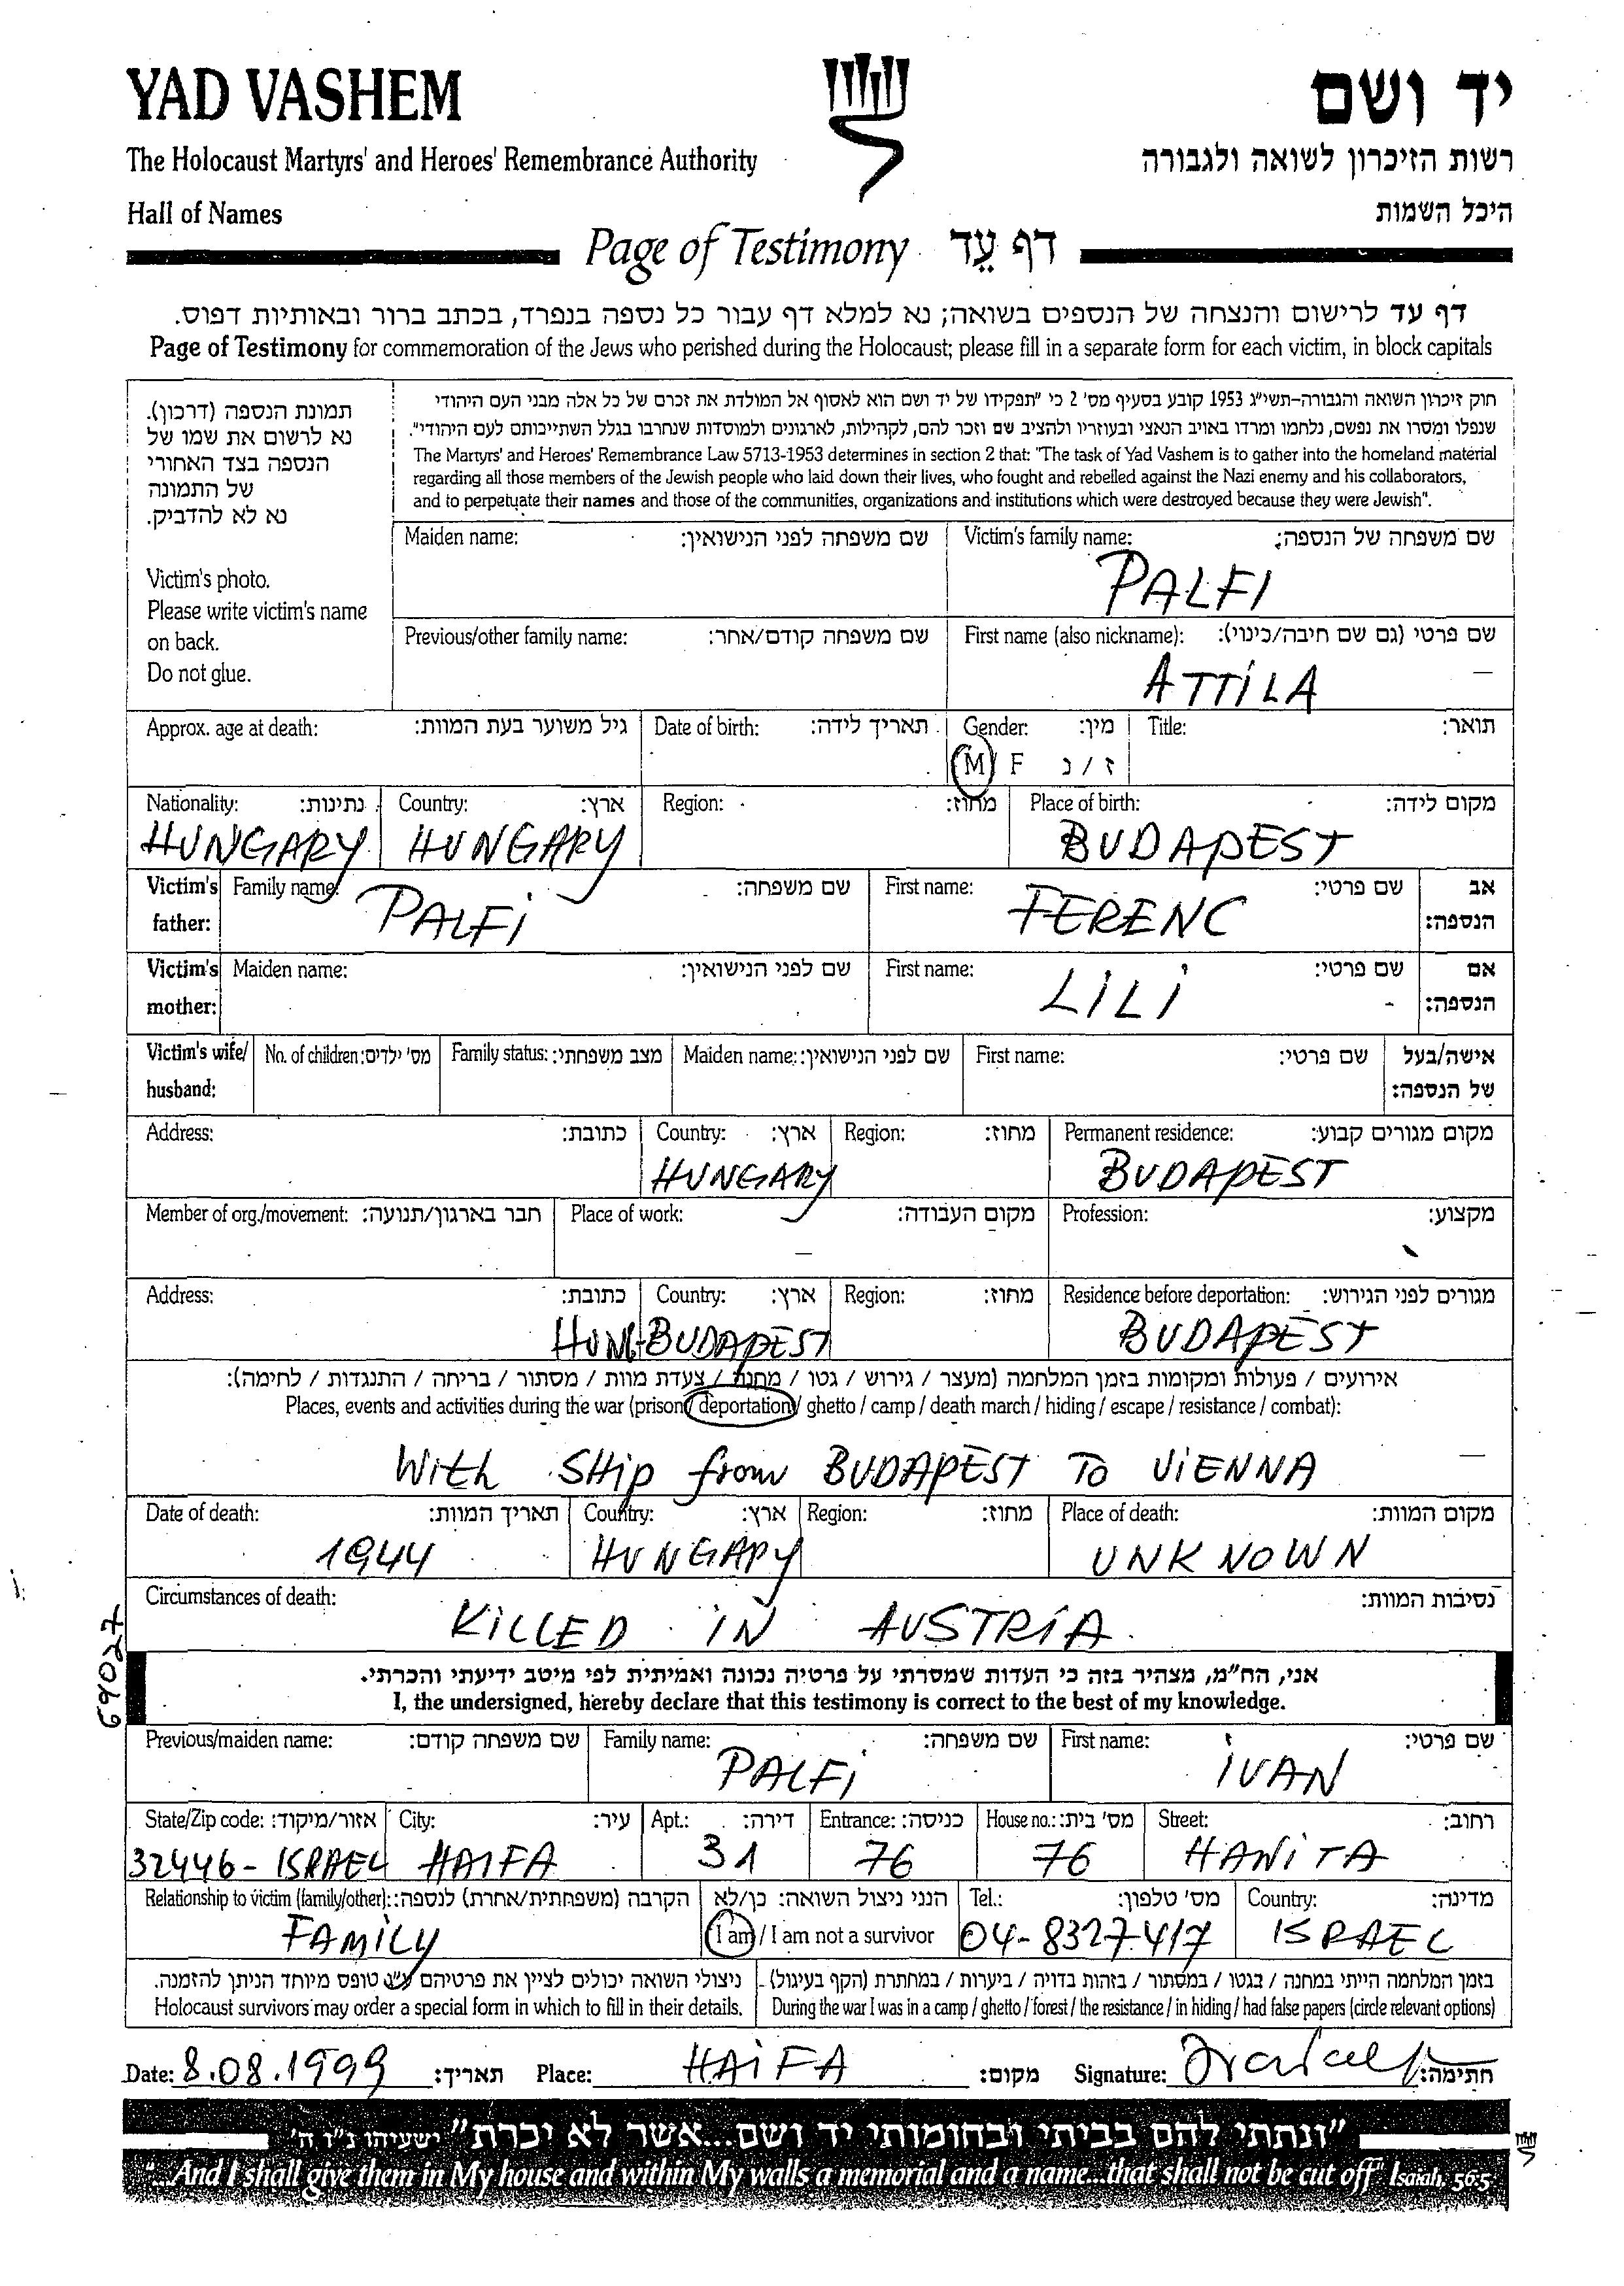 YAD VASHEM
יד ושם
The Holocaust Martyrs' and Heroes' Remembrance Authority
רשות הזיכרון לשואה ולגבורה
Hall of Names
היכל השמות
Page of Testimony דף עֵד
דף עד לרישום והנצחה של הנספים בשואה; נא למלא דף עבור כל נספה בנפרד, בכתב ברור ובאותיות דפוס.
Page of Testimony for commemoration of the Jews who perished during the Holocaust; please fill in a separate form for each victim, in block capitals
תמונת הנספה (דרכון).
נא לרשום את שמו של
הנספה בצד האחורי
של התמונה
נא לא להדביק.
Victim's photo.
Please write victim's name
on back.
Do not glue.
חוק זיכרון השואה והגבורה–תשי״ג 1953 קובע בסעיף מס׳ 2 כי ״תפקידו של יד ושם הוא לאסוף אל המולדת את זכרם של כל אלה מבני העם היהודי
שנפלו ומסרו את נפשם, נלחמו ומרדו באויב הנאצי ובעוזריו ולהציב שם וזכר להם, לקהילות, לארגונים ולמוסדות שנחרבו בגלל השתייכותם לעם היהודי״.
The Martyrs' and Heroes' Remembrance Law 5713-1953 determines in section 2 that: "The task of Yad Vashem is to gather into the homeland material
regarding all those members of the Jewish people who laid down their lives, who fought and rebelled against the Nazi enemy and his collaborators,
and to perpetuate their names and those of the communities, organizations and institutions which were destroyed because they were Jewish".
Maiden name: שם משפחה לפני הנישואין: Victim's family name: שם משפחה של הנספה:
PALFI
Previous/other family name: שם משפחה קודם/אחר: First name (also nickname): שם פרטי (גם שם חיבה/כינוי):
ATTILA
Approx. age at death: גיל משוער בעת המוות: Date of birth: תאריך לידה: Gender: מין: Title: תואר:
M / F ז / נ
Nationality: נתינות: Country: ארץ: Region: מחוז: Place of birth: מקום לידה:
HUNGARY HUNGARY BUDAPEST
Victim's father: Family name: שם משפחה: First name: שם פרטי: אב הנספה:
PALFI FERENC
Victim's mother: Maiden name: שם לפני הנישואין: First name: שם פרטי: אם הנספה:
LILI
Victim's wife/ husband: No. of children: מס׳ ילדים: Family status: מצב משפחתי: Maiden name: שם לפני הנישואין: First name: שם פרטי: אישה/בעל של הנספה:
Address: כתובת: Country: ארץ: Region: מחוז: Permanent residence: מקום מגורים קבוע:
HUNGARY BUDAPEST
Member of org./movement: חבר בארגון/תנועה: Place of work: מקום העבודה: Profession: מקצוע:
Address: כתובת: Country: ארץ: Region: מחוז: Residence before deportation: מגורים לפני הגירוש:
HUN-BUDAPEST BUDAPEST
אירועים / פעולות ומקומות בזמן המלחמה (מעצר / גירוש / גטו / מחנה / צעדת מוות / מסתור / בריחה / התנגדות / לחימה):
Places, events and activities during the war (prison / deportation / ghetto / camp / death march / hiding / escape / resistance / combat):
With SHip from BUDAPEST To VIENNA
Date of death: תאריך המוות: Country: ארץ: Region: מחוז: Place of death: מקום המוות:
1944 HUNGARY UNKNOWN
Circumstances of death: נסיבות המוות:
KILLED IN AUSTRIA
69027
אני, הח״מ, מצהיר בזה כי העדות שמסרתי על פרטיה נכונה ואמיתית לפי מיטב ידיעתי והכרתי.
I, the undersigned, hereby declare that this testimony is correct to the best of my knowledge.
Previous/maiden name: שם משפחה קודם: Family name: שם משפחה: First name: שם פרטי:
PALFI IVAN
State/Zip code: אזור/מיקוד: City: עיר: Apt.: דירה: Entrance: כניסה: House no.: מס׳ בית: Street: רחוב:
32446- ISRAEL HAIFA 31 76 76 HANITA
Relationship to victim (family/other): הקרבה (משפחתית/אחרת) לנספה: הנני ניצול השואה: כן/לא Tel.: מס׳ טלפון: Country: מדינה:
FAMILY I am / I am not a survivor 04-8327417 ISRAEL
ניצולי השואה יכולים לציין את פרטיהם ע״ג טופס מיוחד הניתן להזמנה.
Holocaust survivors may order a special form in which to fill in their details.
בזמן המלחמה הייתי במחנה / בגטו / במסתור / בזהות בדויה / ביערות / במחתרת (הקף בעיגול)
During the war I was in a camp / ghetto / forest / the resistance / in hiding / had false papers (circle relevant options)
Date: 8.08.1999 תאריך: Place: HAIFA מקום: Signature: חתימה:
״ונתתי להם בביתי ובחומותי יד ושם...אשר לא יכרת״ ישעיהו נ״ו ה׳
"...And I shall give them in My house and within My walls a memorial and a name...that shall not be cut off" Isaiah, 56:5